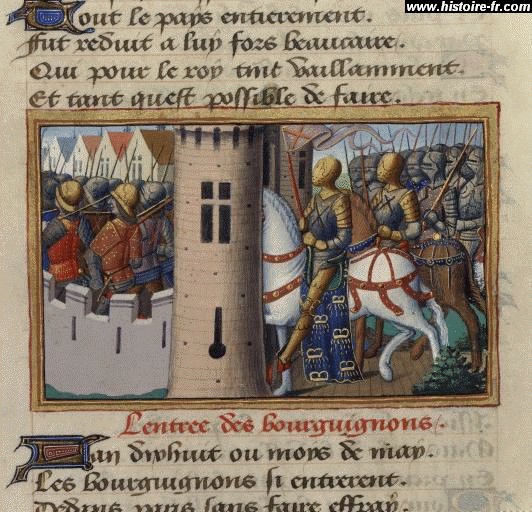 www.histoire-fr.com
Tout le pays entierement.
Fut reduit a luy fors beaucaire.
Qui pour le roy tint vaillamment.
Et tant quest possible de faire.
Lentree des bourguignons.
Lan dixhuit ou moys de may.
Les bourguignons si entrerent.
Dedans paris sans faire effray.